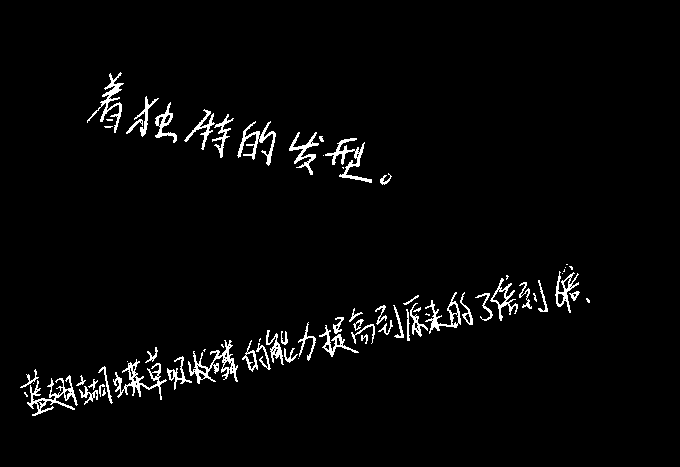 着独特的发型。
蓝翅蝴蝶草吸收磷的能力提高到原来的3倍到6倍、